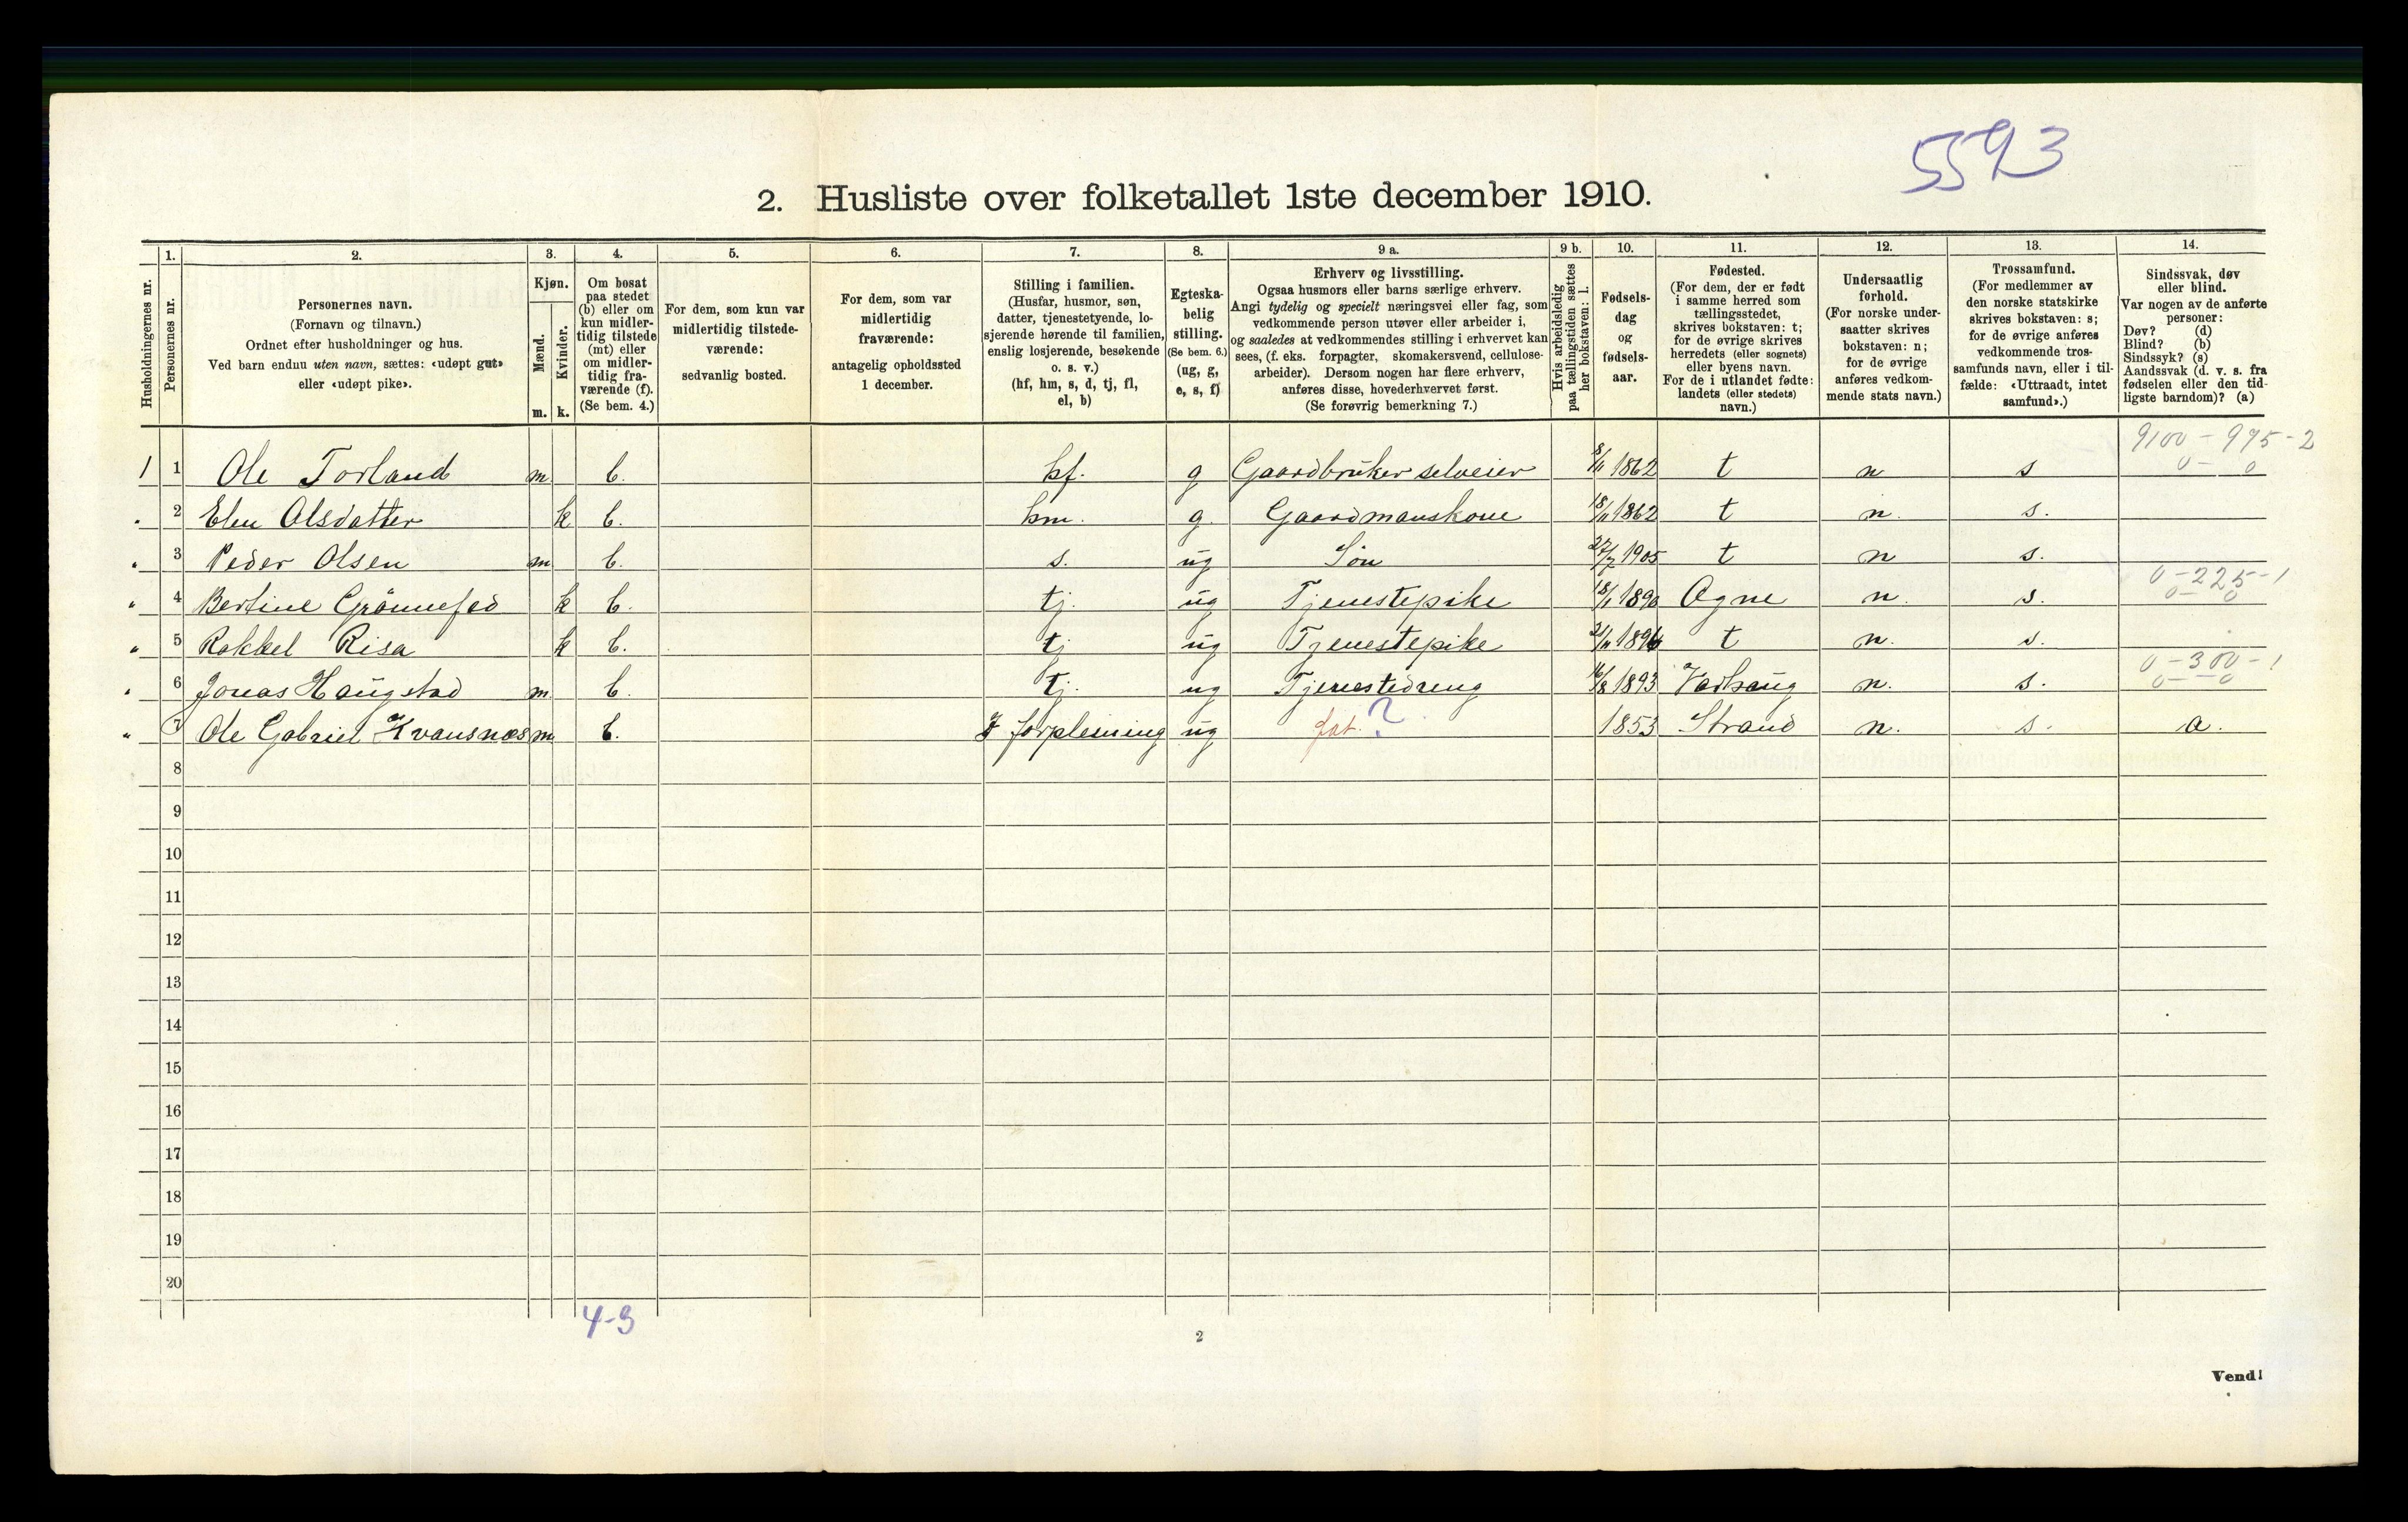 5593
2. Husliste over folketallet 1ste december 1910.
Husholdningernes nr.
1.
Personernes nr.
2.
Personernes navn.
(Fornavn og tilnavn.)
Ordnet efter husholdninger og hus.
Ved barn endnu uten navn, sættes: «udøpt gut»
eller «udøpt pike».
3.
Kjøn.
Mænd.
Kvinder.
m. k.
4.
Om bosat
paa stedet
(b) eller om
kun midler-
tidig tilstede
(mt) eller
om midler-
tidig fra-
værende (f).
(Se bem. 4.)
5.
For dem, som kun var
midlertidig tilstede-
værende:
sedvanlig bosted.
6.
For dem, som var
midlertidig
fraværende:
antagelig opholdssted
1 december.
7.
Stilling i familien.
(Husfar, husmor, søn,
datter, tjenestetyende, lo-
sjerende hørende til familien,
enslig losjerende, besøkende
o. s. v.)
(hf, hm, s, d, tj, fl,
el, b)
8.
Egteska-
belig
stilling.
(Se bem. 6.)
(ug, g,
e, s, f)
9 a.
Erhverv og livsstilling.
Ogsaa husmors eller barns særlige erhverv.
Angi tydelig og specielt næringsvei eller fag, som
vedkommende person utøver eller arbeider i,
og saaledes at vedkommendes stilling i erhvervet kan
sees, (f. eks. forpagter, skomakersvend, cellulose-
arbeider). Dersom nogen har flere erhverv,
anføres disse, hovederhvervet først.
(Se forøvrig bemerkning 7.)
9 b.
Hvis arbeidsledig
paa tællingstiden sættes
her bokstaven: l.
10.
Fødsels-
dag
og
fødsels-
aar.
11.
Fødested.
(For dem, der er født
i samme herred som
tællingsstedet,
skrives bokstaven: t;
for de øvrige skrives
herredets (eller sognets)
eller byens navn.
For de i utlandet fødte:
landets (eller stedets)
navn.)
12.
Undersaatlig
forhold.
(For norske under-
saatter skrives
bokstaven: n;
for de øvrige
anføres vedkom-
mende stats navn.)
13.
Trossamfund.
(For medlemmer av
den norske statskirke
skrives bokstaven: s;
for de øvrige anføres
vedkommende tros-
samfunds navn, eller i til-
fælde: «Uttraadt, intet
samfund».)
14.
Sindssvak, døv
eller blind.
Var nogen av de anførte
personer:
Døv? (d)
Blind? (b)
Sindssyk? (s)
Aandssvak (d. v. s. fra
fødselen eller den tid-
ligste barndom)? (a)
9100-975-2
1 1 Ole Torland m b. hf. g Gaardbruker selveier 8/11 1862 t n s 0-0
" 2 Elen Olsdatter k b. hm. g. Gaardmanskone 18/11 1862 t n. s.
" 3 Peder Olsen m b. s. ug Søn 27/7 1905 t n s.
0-225-1
" 4 Bertine Grønnefed k b. tj. ug Tjenestepike 18/1 1890 Ogne n. s. 0-0
" 5 Rakkel Risa k b. tj ug Tjenestepike 21/11 1894 t n. s.
0-300-1
" 6 Jonas Haugstad m. b. tj. ug Tjenestedreng 16/8 1893 Varhaug n. s. 0-0
" 7 Ole Gabriel Kvansnæs m b. I forpleining ug fat. ? 1853 Strand n. s. a.
8
9
10
11
12
13
14
15
16
17
18
19
20
4-3
2
Vend!